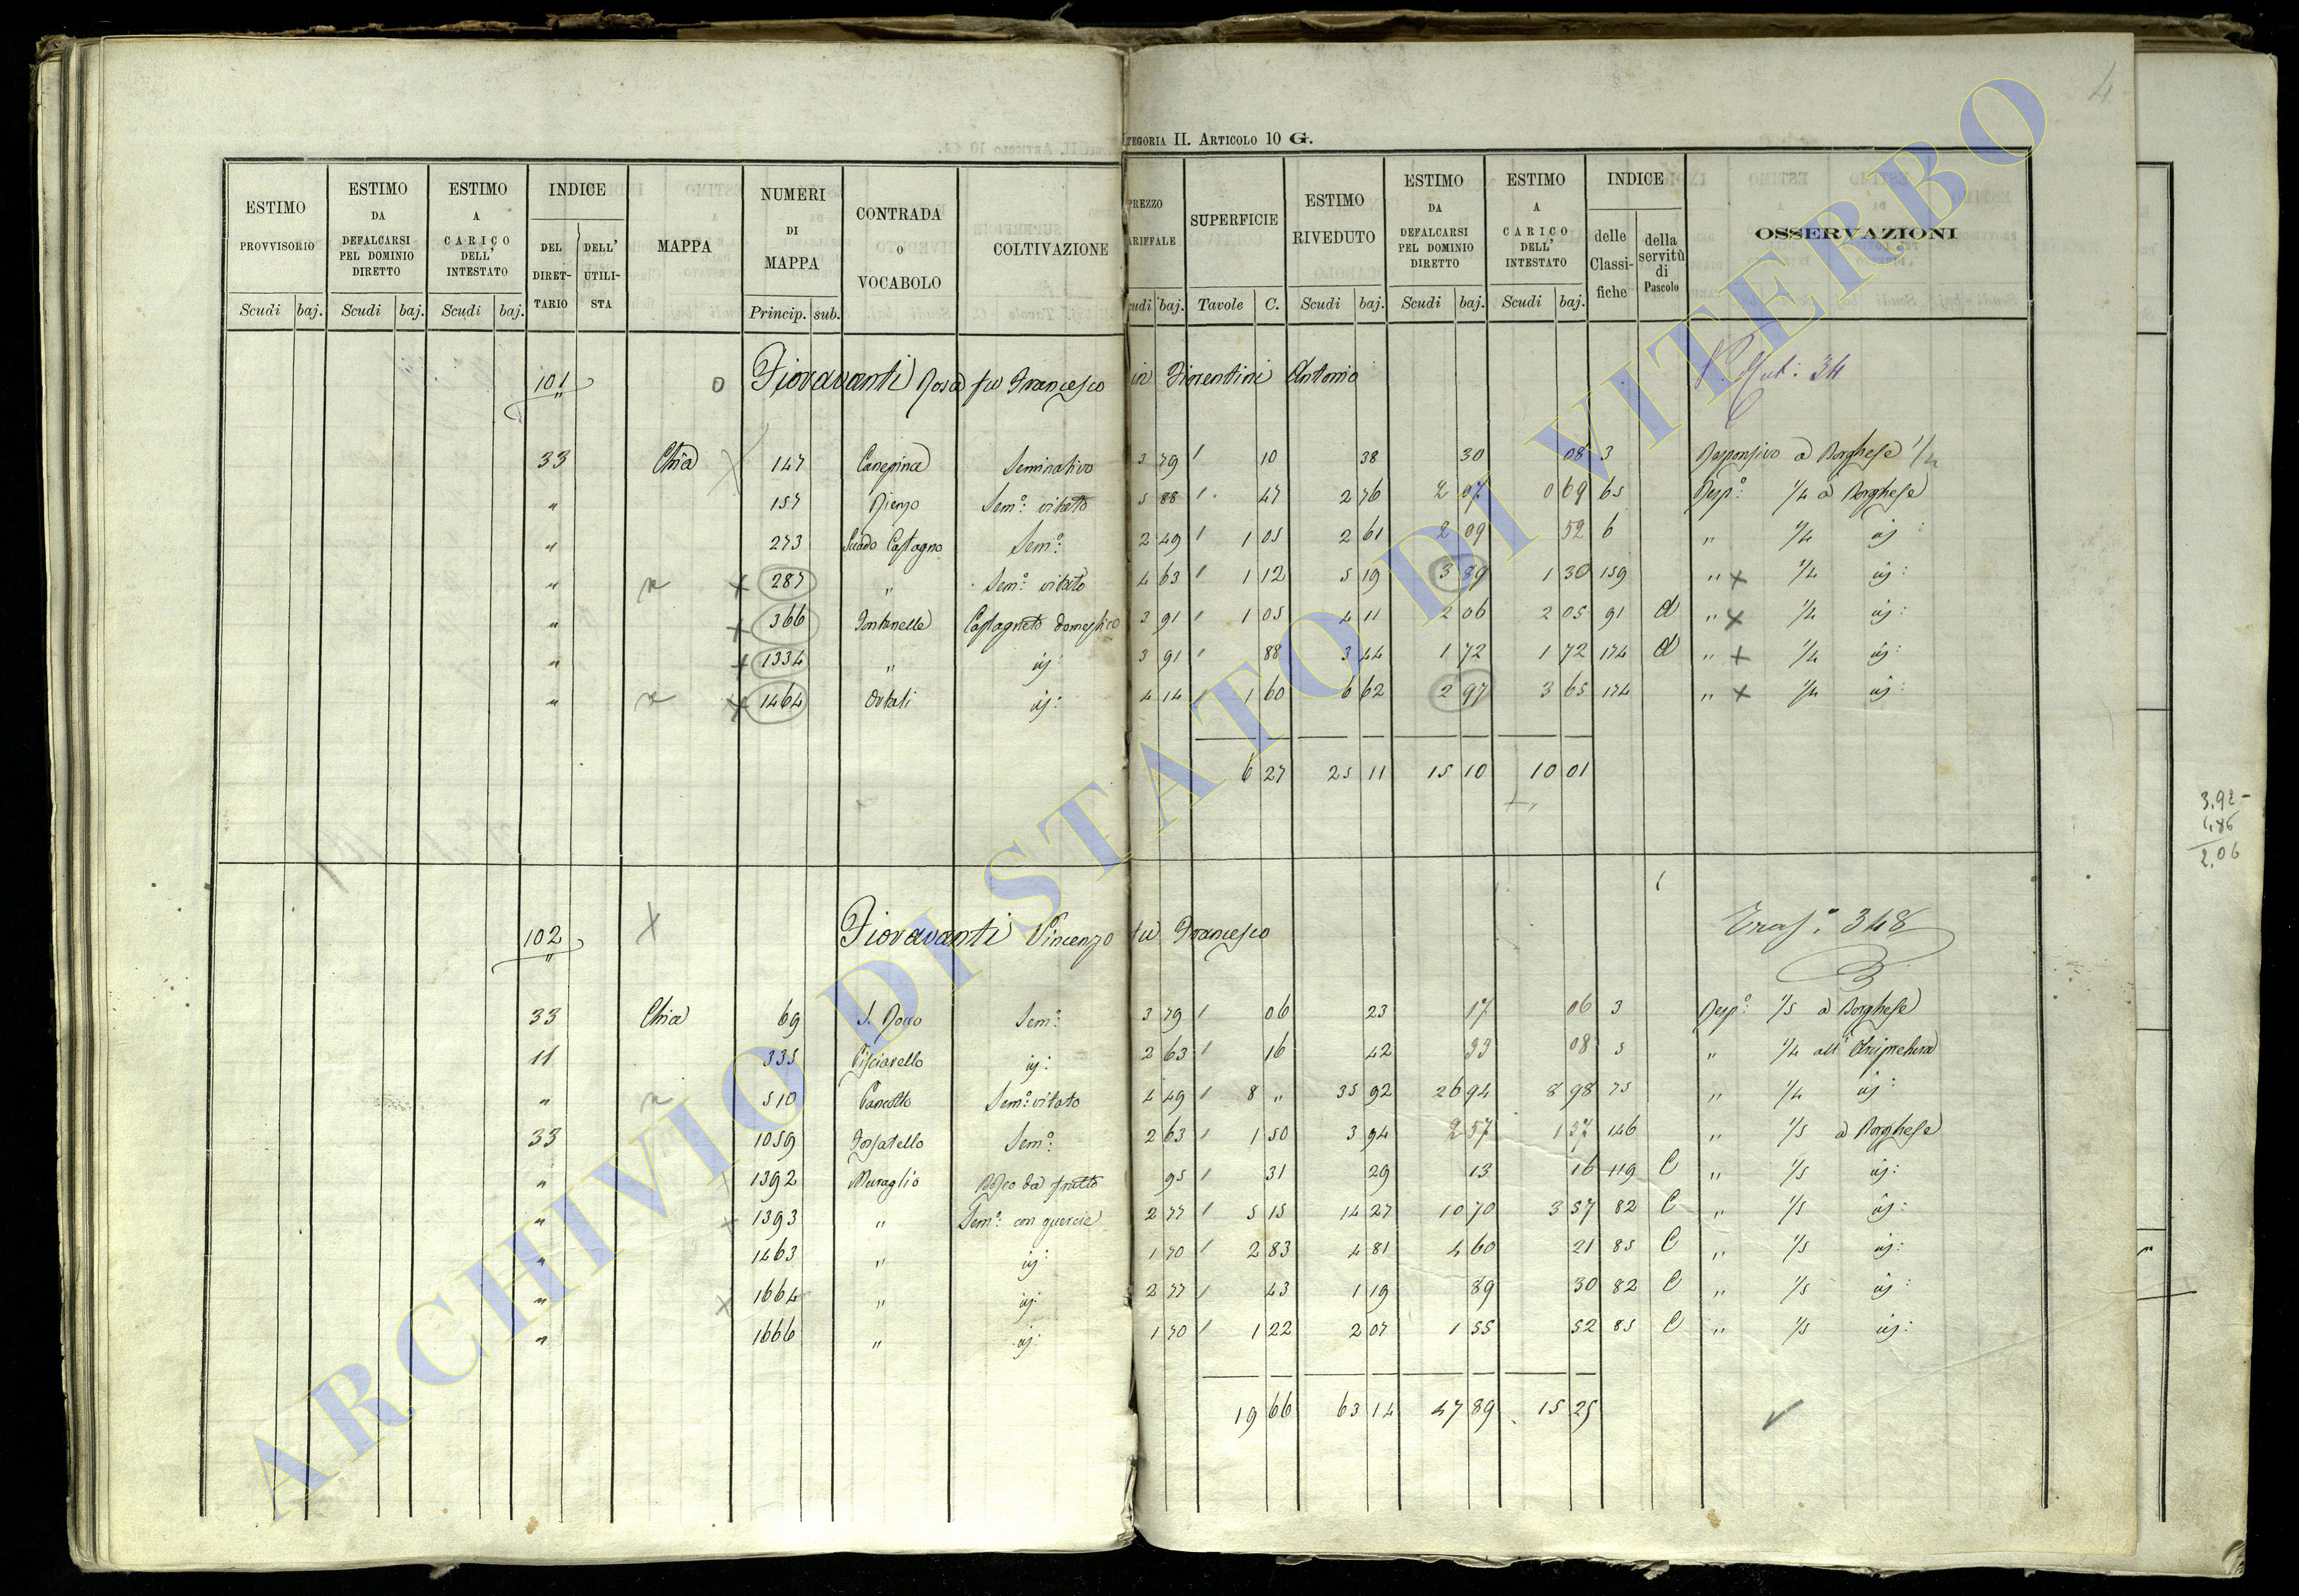 4
TEGORIA II. ARTICOLO 10 G.
ESTIMO PROVVISORIO Scudi baj.
ESTIMO DA DEFALCARSI PEL DOMINIO DIRETTO Scudi baj.
ESTIMO A CARICO DELL' INTESTATO Scudi baj.
INDICE DEL DIRETTARIO DELL' UTILISTA
MAPPA
NUMERI DI MAPPA Princip. sub.
CONTRADA O VOCABOLO
COLTIVAZIONE
PREZZO ARIFFALE cudi baj.
SUPERFICIE Tavole C.
ESTIMO RIVEDUTO Scudi baj.
ESTIMO DA DEFALCARSI PEL DOMINIO DIRETTO Scudi baj.
ESTIMO A CARICO DELL' INTESTATO Scudi baj.
INDICE delle Classifiche della servitù di Pascolo
OSSERVAZIONI
101 Fioravanti Rosa fu Francesco in Fiorentini Antonio 34
33 Chia 147 Canepina Seminativo 3 79 10 38 30 08 3 Responsivo a Borghese 1/4
" 157 Rienzo Sem.° vitato 5 88 47 2 76 2 07 0 69 65 Resp.° 1/4 a Borghese
" 273 Guado Castagno Sem.° 2 49 1 05 2 61 2 09 52 6 " 1/4 iđ:
" 287 " Sem.° vitato 4 63 1 12 5 19 3 89 1 30 159 " 1/4 id:
" 366 Fontanelle Castagneto domestico 3 91 1 05 4 11 2 06 2 05 91 a " 1/4 id:
" 1334 " id: 3 91 88 3 44 1 72 1 72 174 a " 1/4 id:
" 1464 Ortali id: 4 14 1 60 6 62 2 97 3 65 174 " 1/4 id:
6 27 25 11 15 10 10 01
3.92
1,86
2,06
102 Fioravanti Vincenzo fu Francesco Tras.° 348
33 Chia 69 S. Rocco Sem.° 3 79 06 23 17 06 3 Resp.° 1/5 a Borghese
11 335 Pisciarello id: 2 63 16 42 33 08 5 " 1/4 all' Arcipretura
" 510 Pancotto Sem.° vitato 4 49 8 " 35 92 26 94 8 98 75 " 1/4 id:
33 1059 Fossatello Sem.° 2 63 1 50 3 94 2 57 1 37 146 " 1/5 a Borghese
" 1392 Muraglie Bosco da frutto 95 31 29 13 16 119 C " 1/5 id:
" 1393 " Sem.° con quercie 2 77 5 15 14 27 10 70 3 57 82 C " 1/5 id:
" 1463 " id: 1 70 2 83 4 81 4 60 21 85 C " 1/5 id:
" 1664 " id: 2 77 43 1 19 89 30 82 C " 1/5 id
" 1666 " id: 1 70 1 22 2 07 1 55 52 85 C " 1/5 id:
19 66 63 14 47 89 15 25
ARCHIVIO DI STATO DI VITERBO